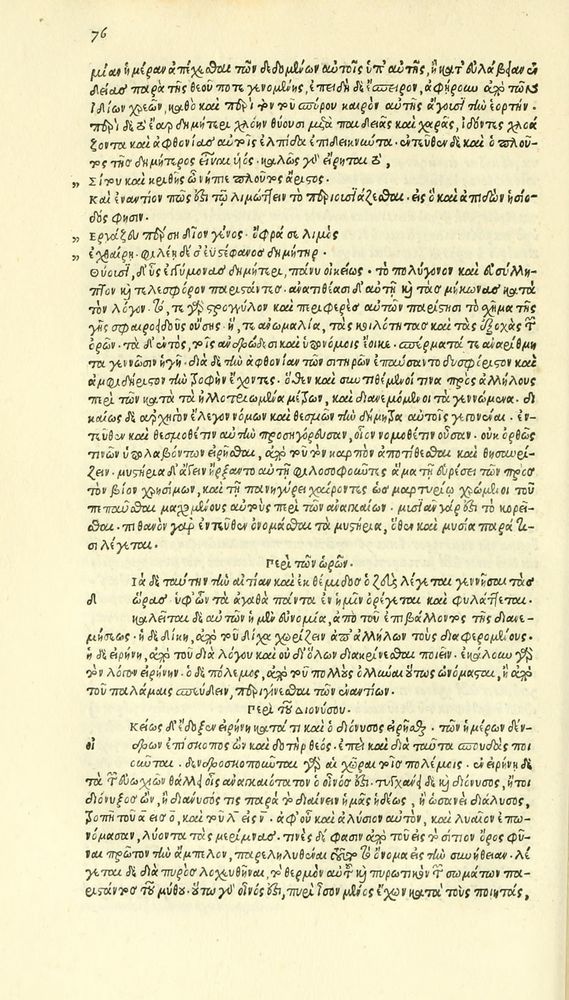 76
μίαν ἡμέραν ἀπέχεσθαι τῶν δεδομένων αὐτοῖς ὑπ' αὐτῆς, ἢ κατ' εὐλάβειαν ἐν
δείας παρὰ τῆς θεοῦ ποτε γενομένης, ἐπειδὴ δὲ ἔσπειρον, ἀφῄρουν ἀπὸ τῶν
ἰδίων χρεῶν, καθὸ καὶ περὶ τὸν τοῦ σπόρου καιρὸν αὐτῆς ἄγουσι τὴν ἑορτήν.
περὶ δὲ τὸ ἔαρ δήμητρι χλόῃ θύουσι μετὰ παιδειᾶς καὶ χαρᾶς, ἰδόντες χλοά
ζοντα καὶ ἀφθονίας αὐτοῖς ἐλπίδα ἐπιδεικνύντα. ἐντεῦθεν δὲ καὶ ὁ πλοῦ-
τος τῆς δήμητρος εἶναι υἱός. καλῶς γὰρ εἴρηται τὸ,
„ Σίτου καὶ κριθῆς ὦ νήπιε πλοῦτος ἄριστος.
Καὶ ἐναντίον πῶς ἐστι τῷ λιμώττειν τὸ περιουσιάζεσθαι. εἰς ὃ καὶ ἀπιδὼν ἡσίο-
δός φησιν.
„ Εργάζευ πέρση δῖον γένος. ὄφρα σε λιμὸς
„ ἐχθαίρῃ. φιλέῃ δέ σ' ἐϋστέφανος δημήτηρ.
Θύουσι δ' ὗς ἐγκύμονας δήμητρι, πάνυ οἰκείως. τὸ πολύγονον καὶ εὐσύλλη-
πτον καὶ τελεσφόρον παριστάντες. ἀνατιθέασι δ' αὐτῇ καὶ τὰς μήκωνας κατὰ
τὸν λόγον. τό, τε γὰρ στρογγύλον καὶ περιφερὲς αὐτῶν παρίστησι τὸ σχῆμα τῆς
γῆς σφαιροειδοῦς οὔσης. ἥ, τε ἀνωμαλία, τὰς κοιλότητας καὶ τὰς ἐξοχὰς τῶν
ὀρῶν. τὰ δ' ἐντός, τοῖς ἀντρώδεσι καὶ ὑπονόμοις ἔοικε. σπέρματά τε ἀναρίθμη
τα γεννῶσιν ἡ γῆ. διὰ δὲ τὴν ἀφθονίαν τῶν σιτηρῶν ἐπαύσαντο δυσπόριστον καὶ
ἀμφιδήριστον τὴν τροφὴν ἔχοντες. ὅθεν καὶ συντιθέμενοί τινα πρὸς ἀλλήλους
περὶ τῶν κατὰ τὰ ἠλλοτειωμένα μέτρων, καὶ διανεμόμενοι τὰ γεννώμενα. δι
καίως δὲ ἀρχηγὸν ἔλεγον νόμων καὶ θεσμῶν τὴν δήμητρα αὐτοῖς γεγονέναι. ἐν-
τεῦθεν καὶ θεσμοθέτιν αὐτὴν προσηγόρευσαν, οἷον νομοθέτιν οὖσαν. οὐκ ὀρθῶς
τινῶν ὑπολαβόντων εἰρῆσθαι, ἀπὸ τοῦ τὸν καρπὸν ἀποτίθεσθαι καὶ θησαυρί-
ζειν. μυστήρια δ' ἄγειν ἤρξαντο αὐτῇ φιλοσοφοῦντες ἅμα τῇ εὑρέσει τῶν πρὸς
τὸν βίον χρησίμων, καὶ τῇ πανηγύρει χαίροντες ὡς μαρτυρίῳ χρώμενοι τοῦ
πεπαῦσθαι μαχομένους αὐτοὺς περὶ τῶν ἀναγκαίων. μυσιᾶν γάρ ἐστι τὸ κορέν-
σθαι. πιθανὸν γὰρ ἐντεῦθεν ὀνομάσθαι τὰ μυστήρια, ὅθεν καὶ μυσία παρά τι-
σι λέγεται.
Περὶ τῶν ὡρῶν.
Ιὰ δὲ ταύτην τὴν αἰτίαν καὶ ἐκ θέμιδος ὁ ζεὺς λέγεται γεννῆσαι τὰς
δι ὥρας. ὑφ' ὧν τὰ ἀγαθὰ πάντα ἐν ἡμῖν ὀρέγεται καὶ φυλάττεται.
καλεῖται δὲ αὐτῶν ἡ μὲν εὐνομία, ἀπὸ τοῦ ἐπιβάλλοντος τῆς διανε-
μήσεως. ἡ δὲ δίκη, ἀπὸ τοῦ δίχα χωρίζειν ἀπ' ἀλλήλων τοὺς διαφερομένους.
ἡ δὲ εἰρήνη, ἀπὸ τοῦ διὰ λόγου καὶ οὐ δι' ὅπλων διακρίνεσθαι ποιεῖν. ἐκάλουν γὰρ
τὸν λόγον εἰρήνην. ὁ δὲ πόλεμος, ἀπὸ τοῦ πολλοὺς ὀλλύναι οὕτως ὠνόμασται, ἢ ἀπὸ
τοῦ παλάμαις σπεύδειν, περιγίνεσθαι τῶν ἐναντίων.
Περὶ τοῦ Διονύσου.
Κείως δ' ἔδοξεν εἰρήνη κατά τι καὶ ὁ διόνυσος εἰρῆσθαι. τῶν ἡμέρων δέν-
οἰ δρων ἐπίσκοπος ὢν καὶ δοτὴρ θεός. ἐπεὶ καὶ διὰ ταῦτα σπονδὰς ποι
οῦνται. δενδροκοποῦνται γὰρ αἱ χῶραι τοῖς πολέμοις. ἐν εἰρήνῃ δὲ
τὰ τῶν εὐωχιῶν θάλλει οἷς ἀναγκαιότατον ὁ οἶνός ἐστι. τυγχάνει δὲ καὶ διόνυσος, ἤτοι
διόνυξος ὤν, ἢ διανυσός τις παρὰ τὸ διαίνειν ἡμᾶς ἡδέως, ἢ ὡσανεὶ διάλυσος,
τροπῇ τοῦ α εἰς ο, καὶ τοῦ λ εἰς ν. ἀφ' οὗ καὶ λύσιον αὐτόν, καὶ λυαῖον ἐπω-
νόμασαν, λύοντα τὰς μερίμνας. τινὲς δέ φασιν ἀπὸ τοῦ εἰς τὸ σίτιον ὄρος φῦ-
ναι πρῶτον τὴν ἄμπελον, παρεληλυθέναι τοῦτο τὸ ὄνομα εἰς τὴν συνήθειαν. λέ
γεται δὲ διὰ πυρὸς λοχευθῆναι, τὸ θερμὸν αὐτοῦ καὶ πυρωτικὸν τῶν σωμάτων πα-
ριστάντος τοῦ μύθου. ὄντως γὰρ οἶνός ἐστι, πυρὶ ἶσον μένος ἔχων κατὰ τοὺς ποιητάς,